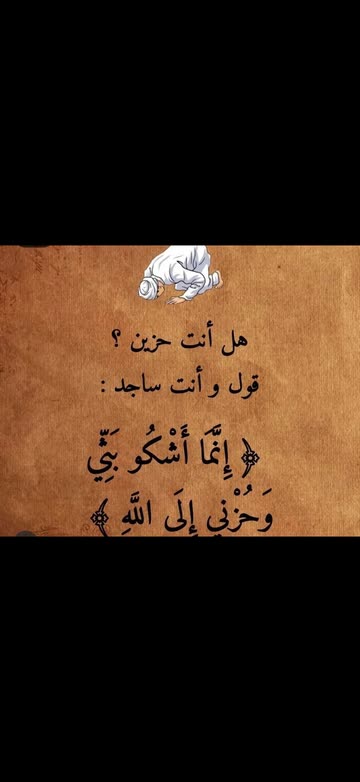 هل أنت حزين ؟
قول و أنت ساجد :
﴿ إِنَّمَا أَشْكُو بَثِّي
وَحُزْنِي إِلَى اللَّهِ ﴾